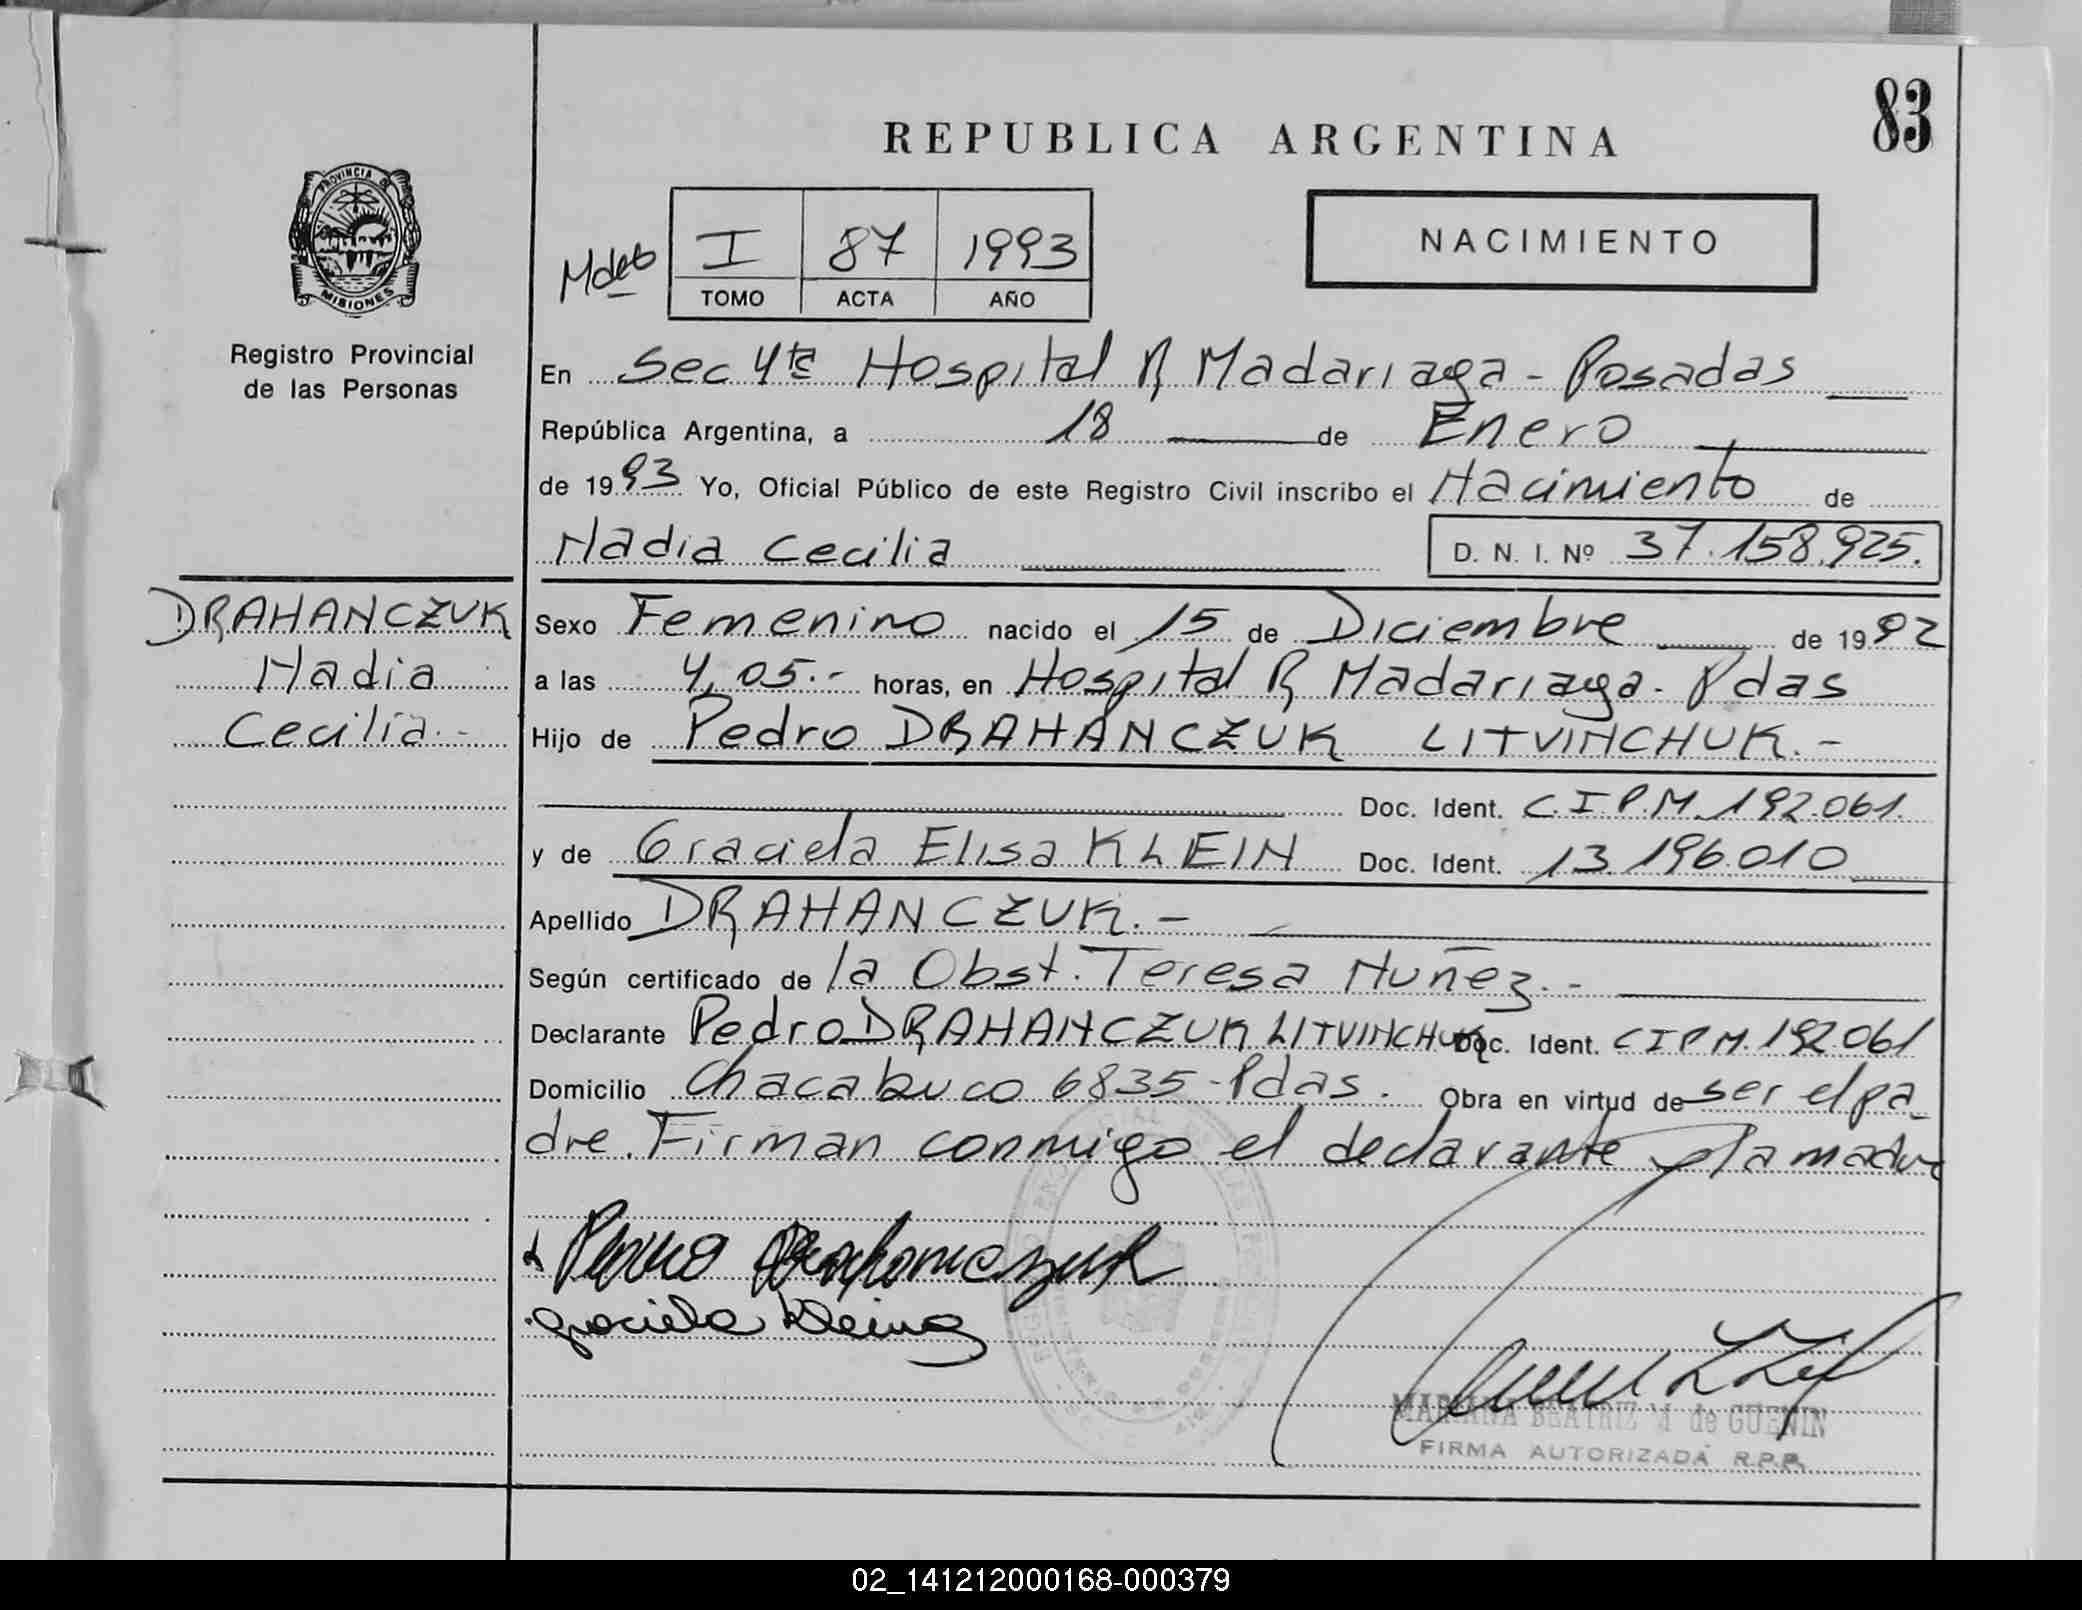 83
REPUBLICA ARGENTINA
PROVINCIA DE
MISIONES
Registro Provincial
de las Personas
I 87 1993
TOMO ACTA AÑO
NACIMIENTO
En Sec 4ta Hospital R Madariaga - Posadas
República Argentina, a 18 de Enero
de 1993 Yo, Oficial Público de este Registro Civil inscribo el Nacimiento de
Nadia Cecilia D. N. I. Nº 37.158.925.
DRAHANCZUK
Nadia
Cecilia.-
Sexo Femenino nacido el 15 de Diciembre de 1992
a las 4,05.- horas, en Hospital R Madariaga - Pdas
Hijo de Pedro DRAHANCZUK LITVINCHUK.-
Doc. Ident. C.I.P.M. 192.061.
y de Graciela Elisa KLEIN Doc. Ident. 13.196.010
Apellido DRAHANCZUK.-
Según certificado de la Obst. Teresa Nuñez.-
Declarante Pedro DRAHANCZUK LITVINCHUK Doc. Ident. CIPM. 192061
Domicilio Chacabuco 6835 - Pdas. Obra en virtud de ser el pa-
dre. Firman conmigo el declarante y la madre
Pedro Drahanczuk
MARIANA BEATRIZ M de GUENIN
FIRMA AUTORIZADA R.P.P.
02_141212000168-000379